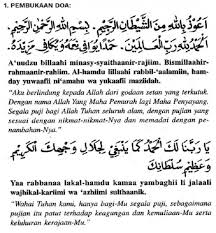 1. PEMBUKAAN DOA:
اَعُوْذُ بِاللّٰهِ مِنَ الشَّيْطَانِ الرَّجِيْمِ. بِسْمِ اللّٰهِ الرَّحْمٰنِ الرَّحِيْمِ.
اَلْحَمْدُ لِلّٰهِ رَبِّ الْعَالَمِيْنَ. حَمْدًا يُوَافِيْ نِعَمَهُ وَيُكَافِئُ مَزِيْدَهُ.
A'uudzu billaahi minasy-syaithaanir-rajiim. Bismillaahir-
rahmaanir-rahiim. Al-hamdu lillaahi rabbil-'aalamiin, ham-
day yuwaafii ni'amahu wa yukaafii maziidah.
"Aku berlindung kepada Allah dari godaan setan yang terkutuk.
Dengan nama Allah Yang Maha Pemurah lagi Maha Penyayang.
Segala puji bagi Allah Tuhan seluruh alam, dengan pujian yang
sesuai dengan nikmat-nikmat-Nya dan memadai dengan pe-
nambahan-Nya."
يَا رَبَّنَا لَكَ الْحَمْدُ كَمَا يَنْبَغِيْ لِجَلَالِ وَجْهِكَ الْكَرِيْمِ
وَعَظِيْمِ سُلْطَانِكَ
Yaa rabbanaa lakal-hamdu kamaa yanbaghii li jalaali
wajhikal-kariimi wa 'azhiimi sulthaanik.
"Wahai Tuhan kami, hanya bagi-Mu segala puji, sebagaimana
pujian itu patut terhadap keagungan dan kemuliaan-Mu serta
keluhuran kerajaan-Mu."